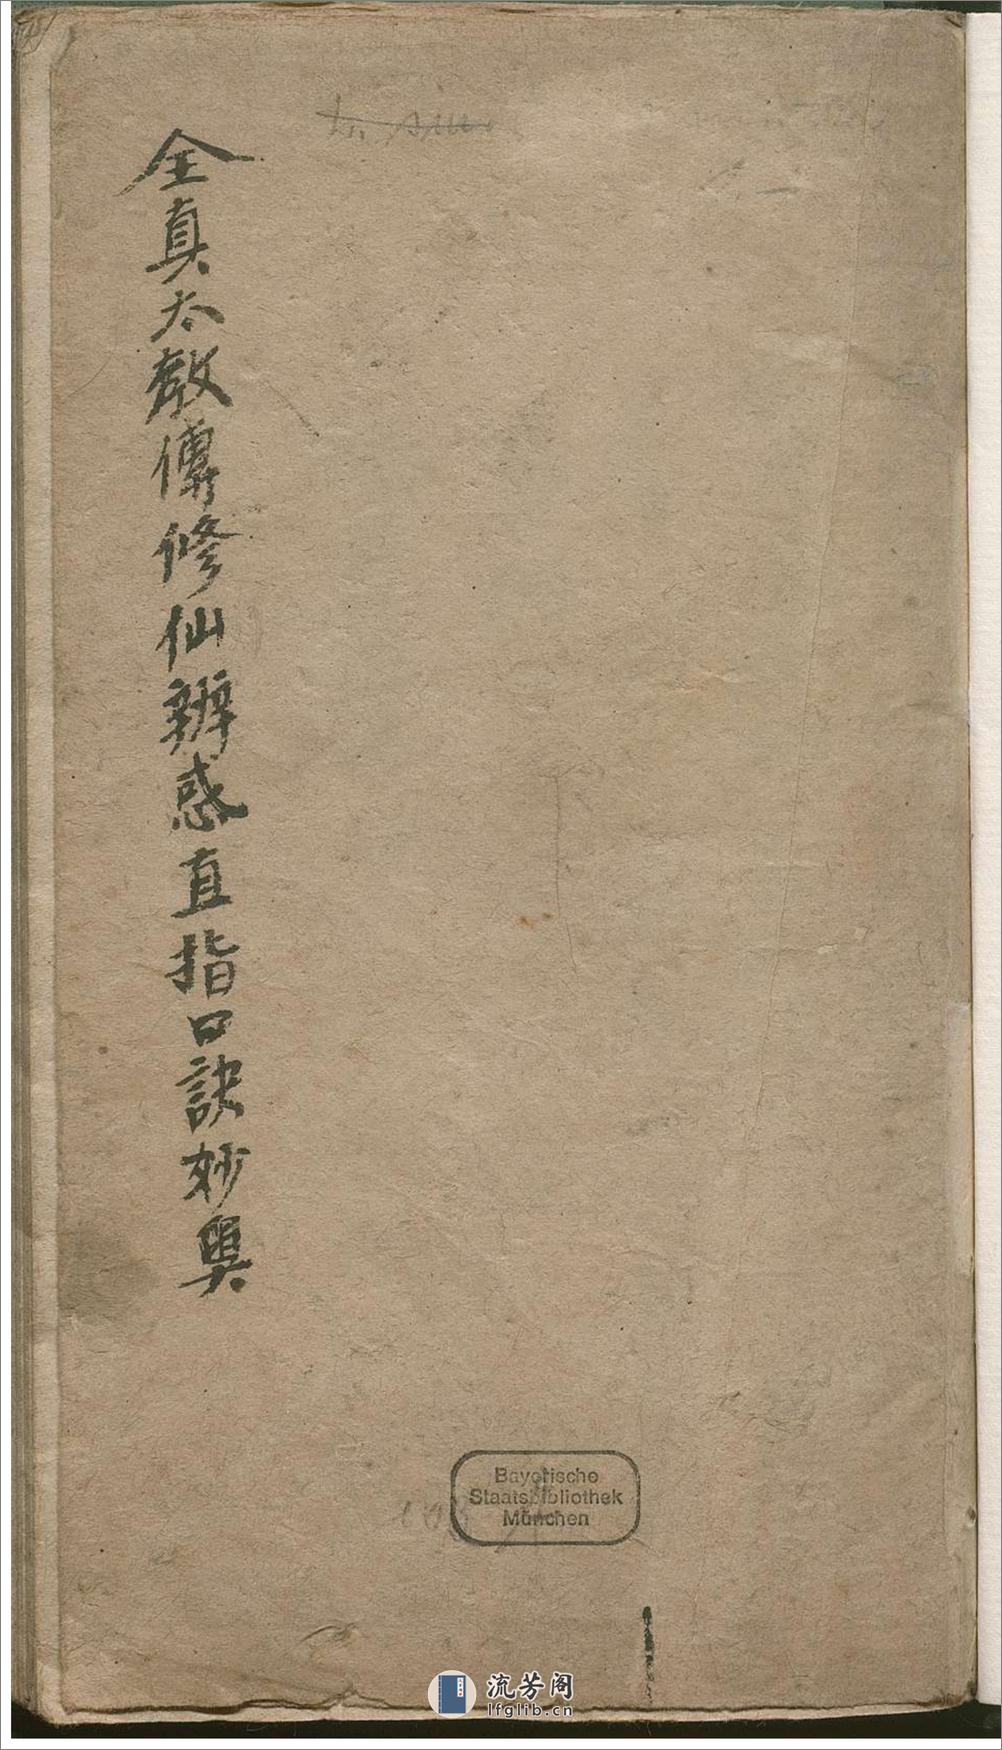 全真太教傳修仙辨惑直指口訣妙奥
Bayerische
Staatsbibliothek
München
流芳阁
lfglib.cn